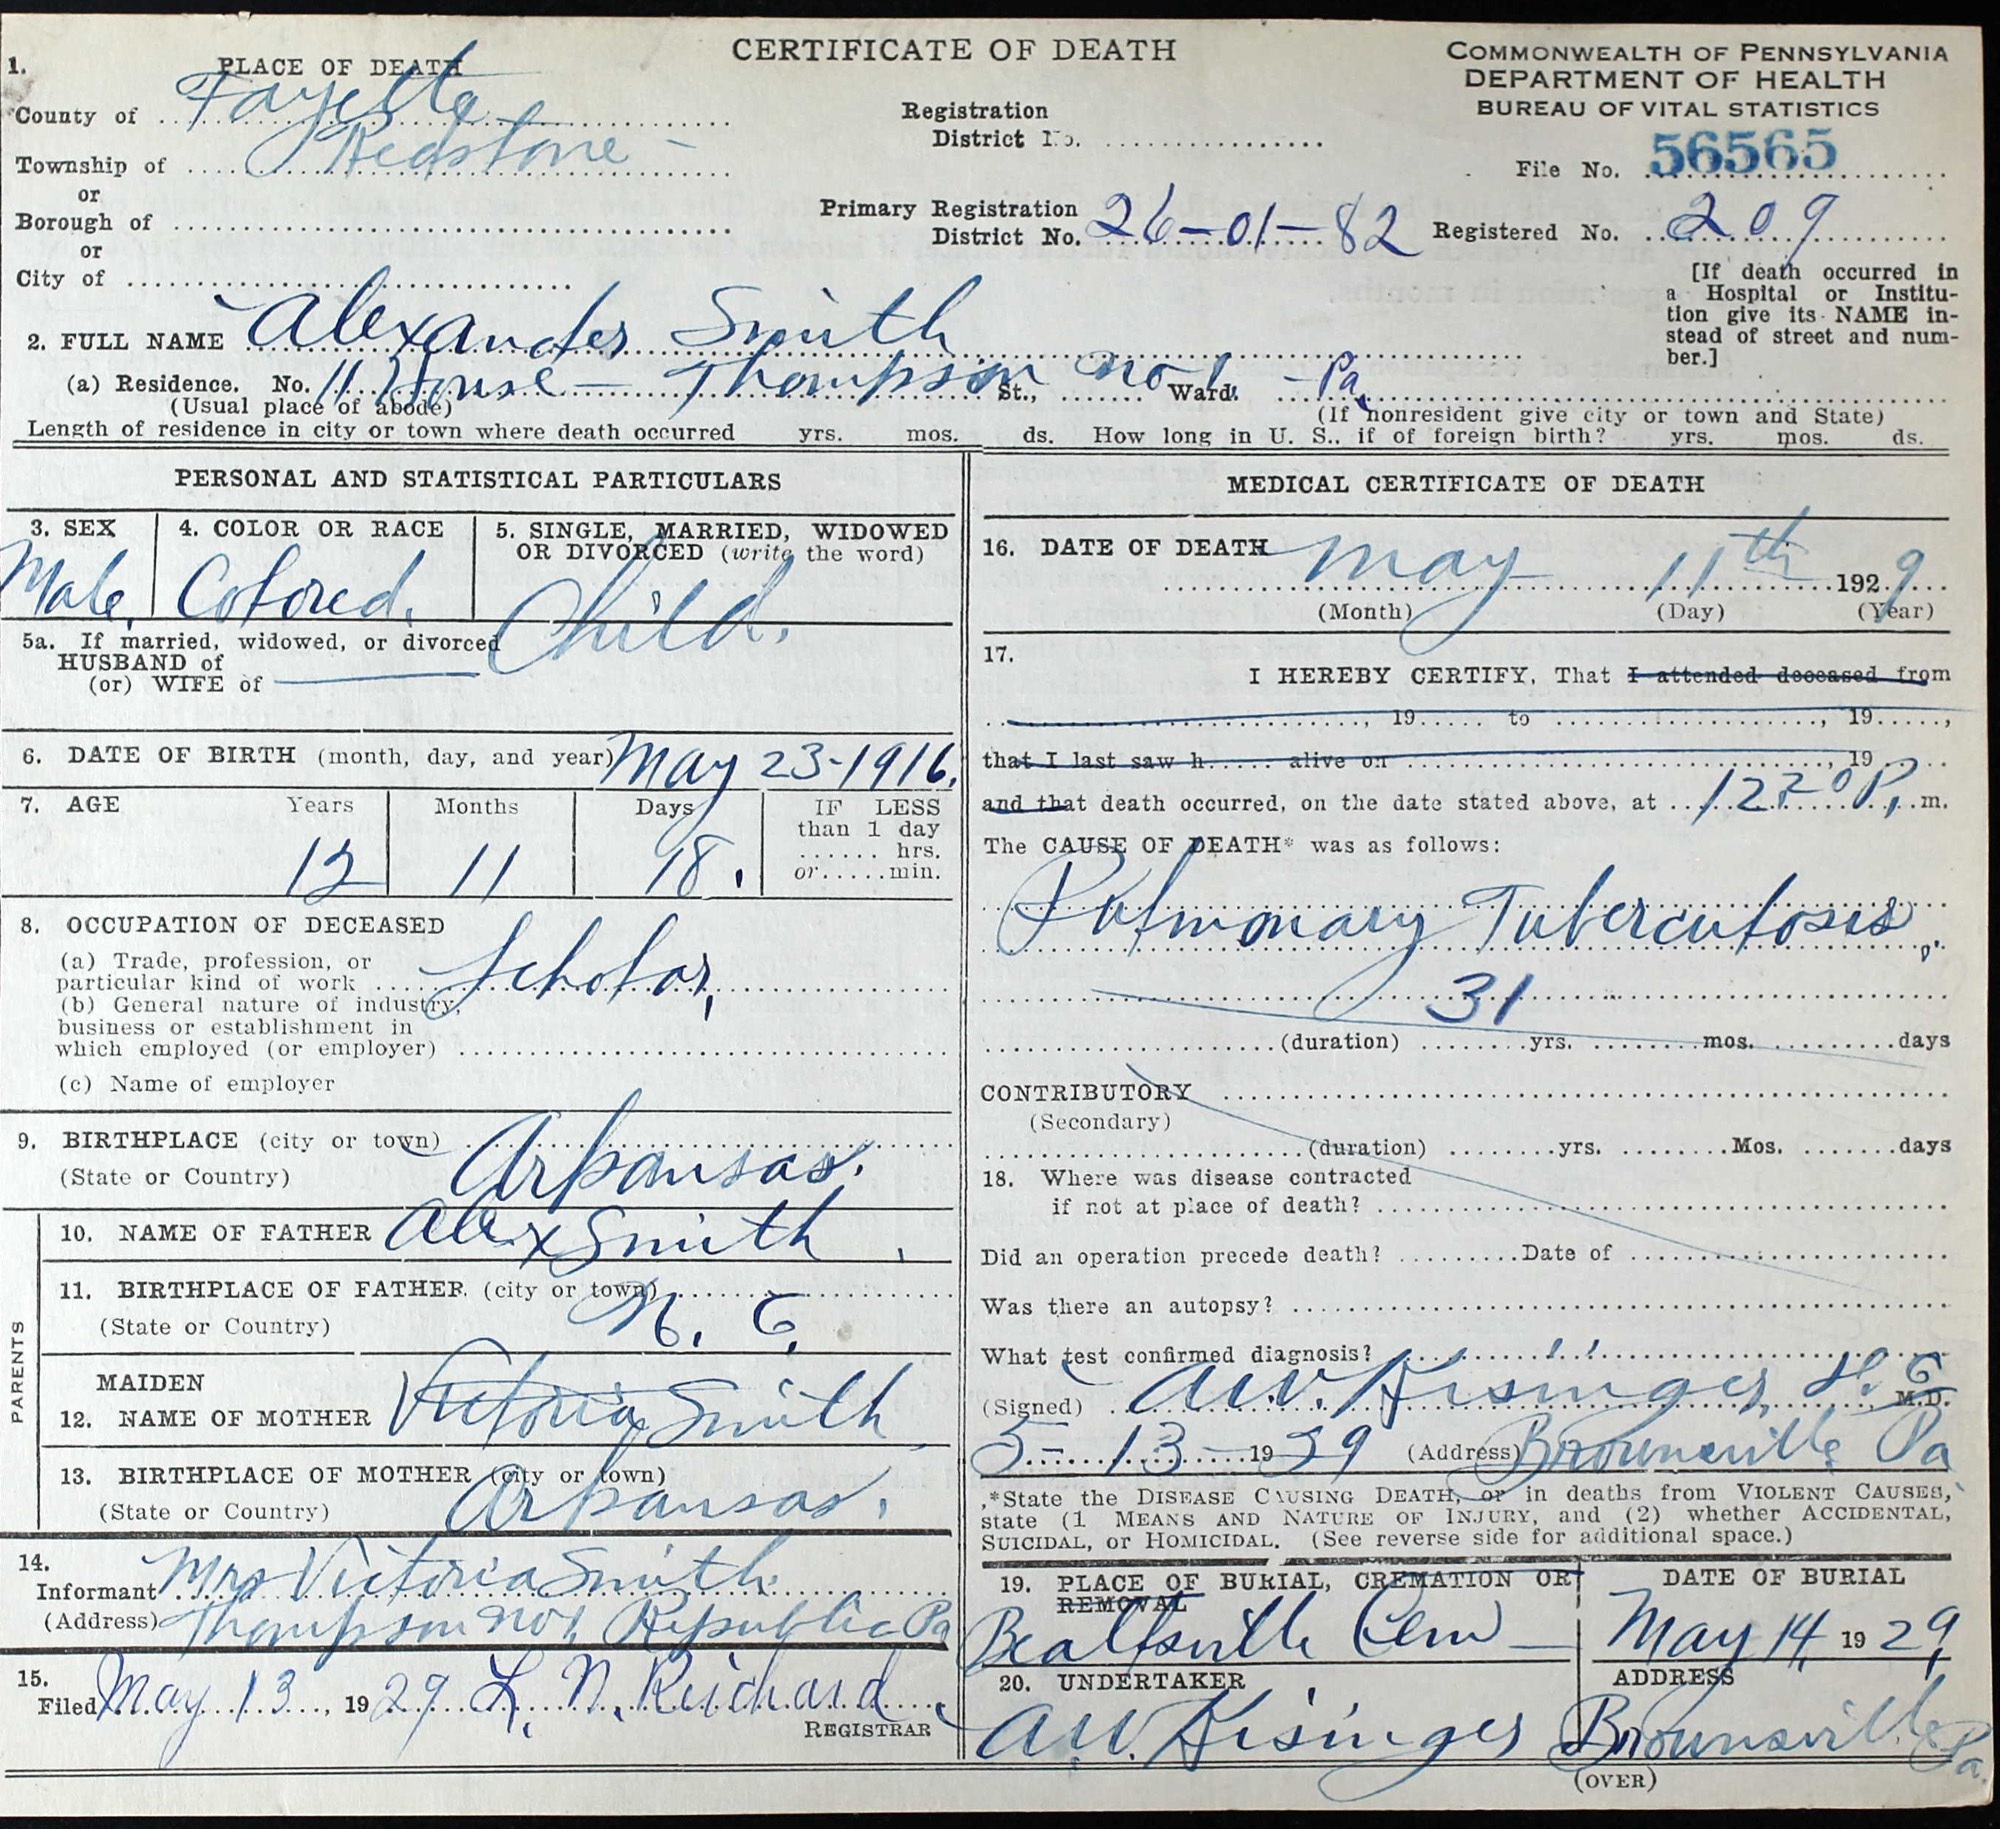 CERTIFICATE OF DEATH
COMMONWEALTH OF PENNSYLVANIA
DEPARTMENT OF HEALTH
BUREAU OF VITAL STATISTICS
1. PLACE OF DEATH
County of Fayette
Township of Redstone
or
Borough of
or
City of
Registration
District No.
File No. 56565
Primary Registration
District No. 26-01-82
Registered No. 209
[If death occurred in
a Hospital or Institu-
tion give its NAME in-
stead of street and num-
ber.]
2. FULL NAME Alexander Smith
(a) Residence. No. 11 House - Thompson St., No 1 Ward. - Pa.
(Usual place of abode)
(If nonresident give city or town and State)
Length of residence in city or town where death occurred yrs. mos. ds. How long in U. S., if of foreign birth? yrs. mos. ds.
PERSONAL AND STATISTICAL PARTICULARS
3. SEX
Male.
4. COLOR OR RACE
Colored.
5. SINGLE, MARRIED, WIDOWED
OR DIVORCED (write the word)
Child.
5a. If married, widowed, or divorced
HUSBAND of
(or) WIFE of
6. DATE OF BIRTH (month, day, and year) May 23-1916.
7. AGE Years Months Days IF LESS
than 1 day
hrs.
or min.
12 11 18.
8. OCCUPATION OF DECEASED
(a) Trade, profession, or
particular kind of work Scholar,
(b) General nature of industry,
business or establishment in
which employed (or employer)
(c) Name of employer
9. BIRTHPLACE (city or town)
(State or Country) Arkansas.
PARENTS
10. NAME OF FATHER Alex Smith,
11. BIRTHPLACE OF FATHER (city or town)
(State or Country) N. C.
MAIDEN
12. NAME OF MOTHER Victoria Smith
13. BIRTHPLACE OF MOTHER (city or town)
(State or Country) Arkansas.
14.
Informant Mrs Victoria Smith
(Address) Thompson No 1, Republic Pa
15.
Filed May 13, 1929 L. N. Reichard
REGISTRAR
MEDICAL CERTIFICATE OF DEATH
16. DATE OF DEATH May 11th 1929
(Month) (Day) (Year)
17.
I HEREBY CERTIFY, That I attended deceased from
, 19 to , 19 ,
that I last saw h alive on , 19
and that death occurred, on the date stated above, at 12 20 P. m.
The CAUSE OF DEATH* was as follows:
Pulmonary Tuberculosis,
31
(duration) yrs. mos. days
CONTRIBUTORY
(Secondary)
(duration) yrs. Mos. days
18. Where was disease contracted
if not at place of death?
Did an operation precede death? Date of
Was there an autopsy?
What test confirmed diagnosis?
(Signed) A.W. Kisinger, M.D.
5-13-19 29 (Address) Brownsville Pa
*State the DISEASE CAUSING DEATH, or in deaths from VIOLENT CAUSES,
state (1 MEANS AND NATURE OF INJURY, and (2) whether ACCIDENTAL,
SUICIDAL, or HOMICIDAL. (See reverse side for additional space.)
19. PLACE OF BURIAL, CREMATION OR
REMOVAL
Beallsville Cem
DATE OF BURIAL
May 14, 1929
20. UNDERTAKER
A.W. Kisinger
ADDRESS
Brownsville Pa.
(OVER)